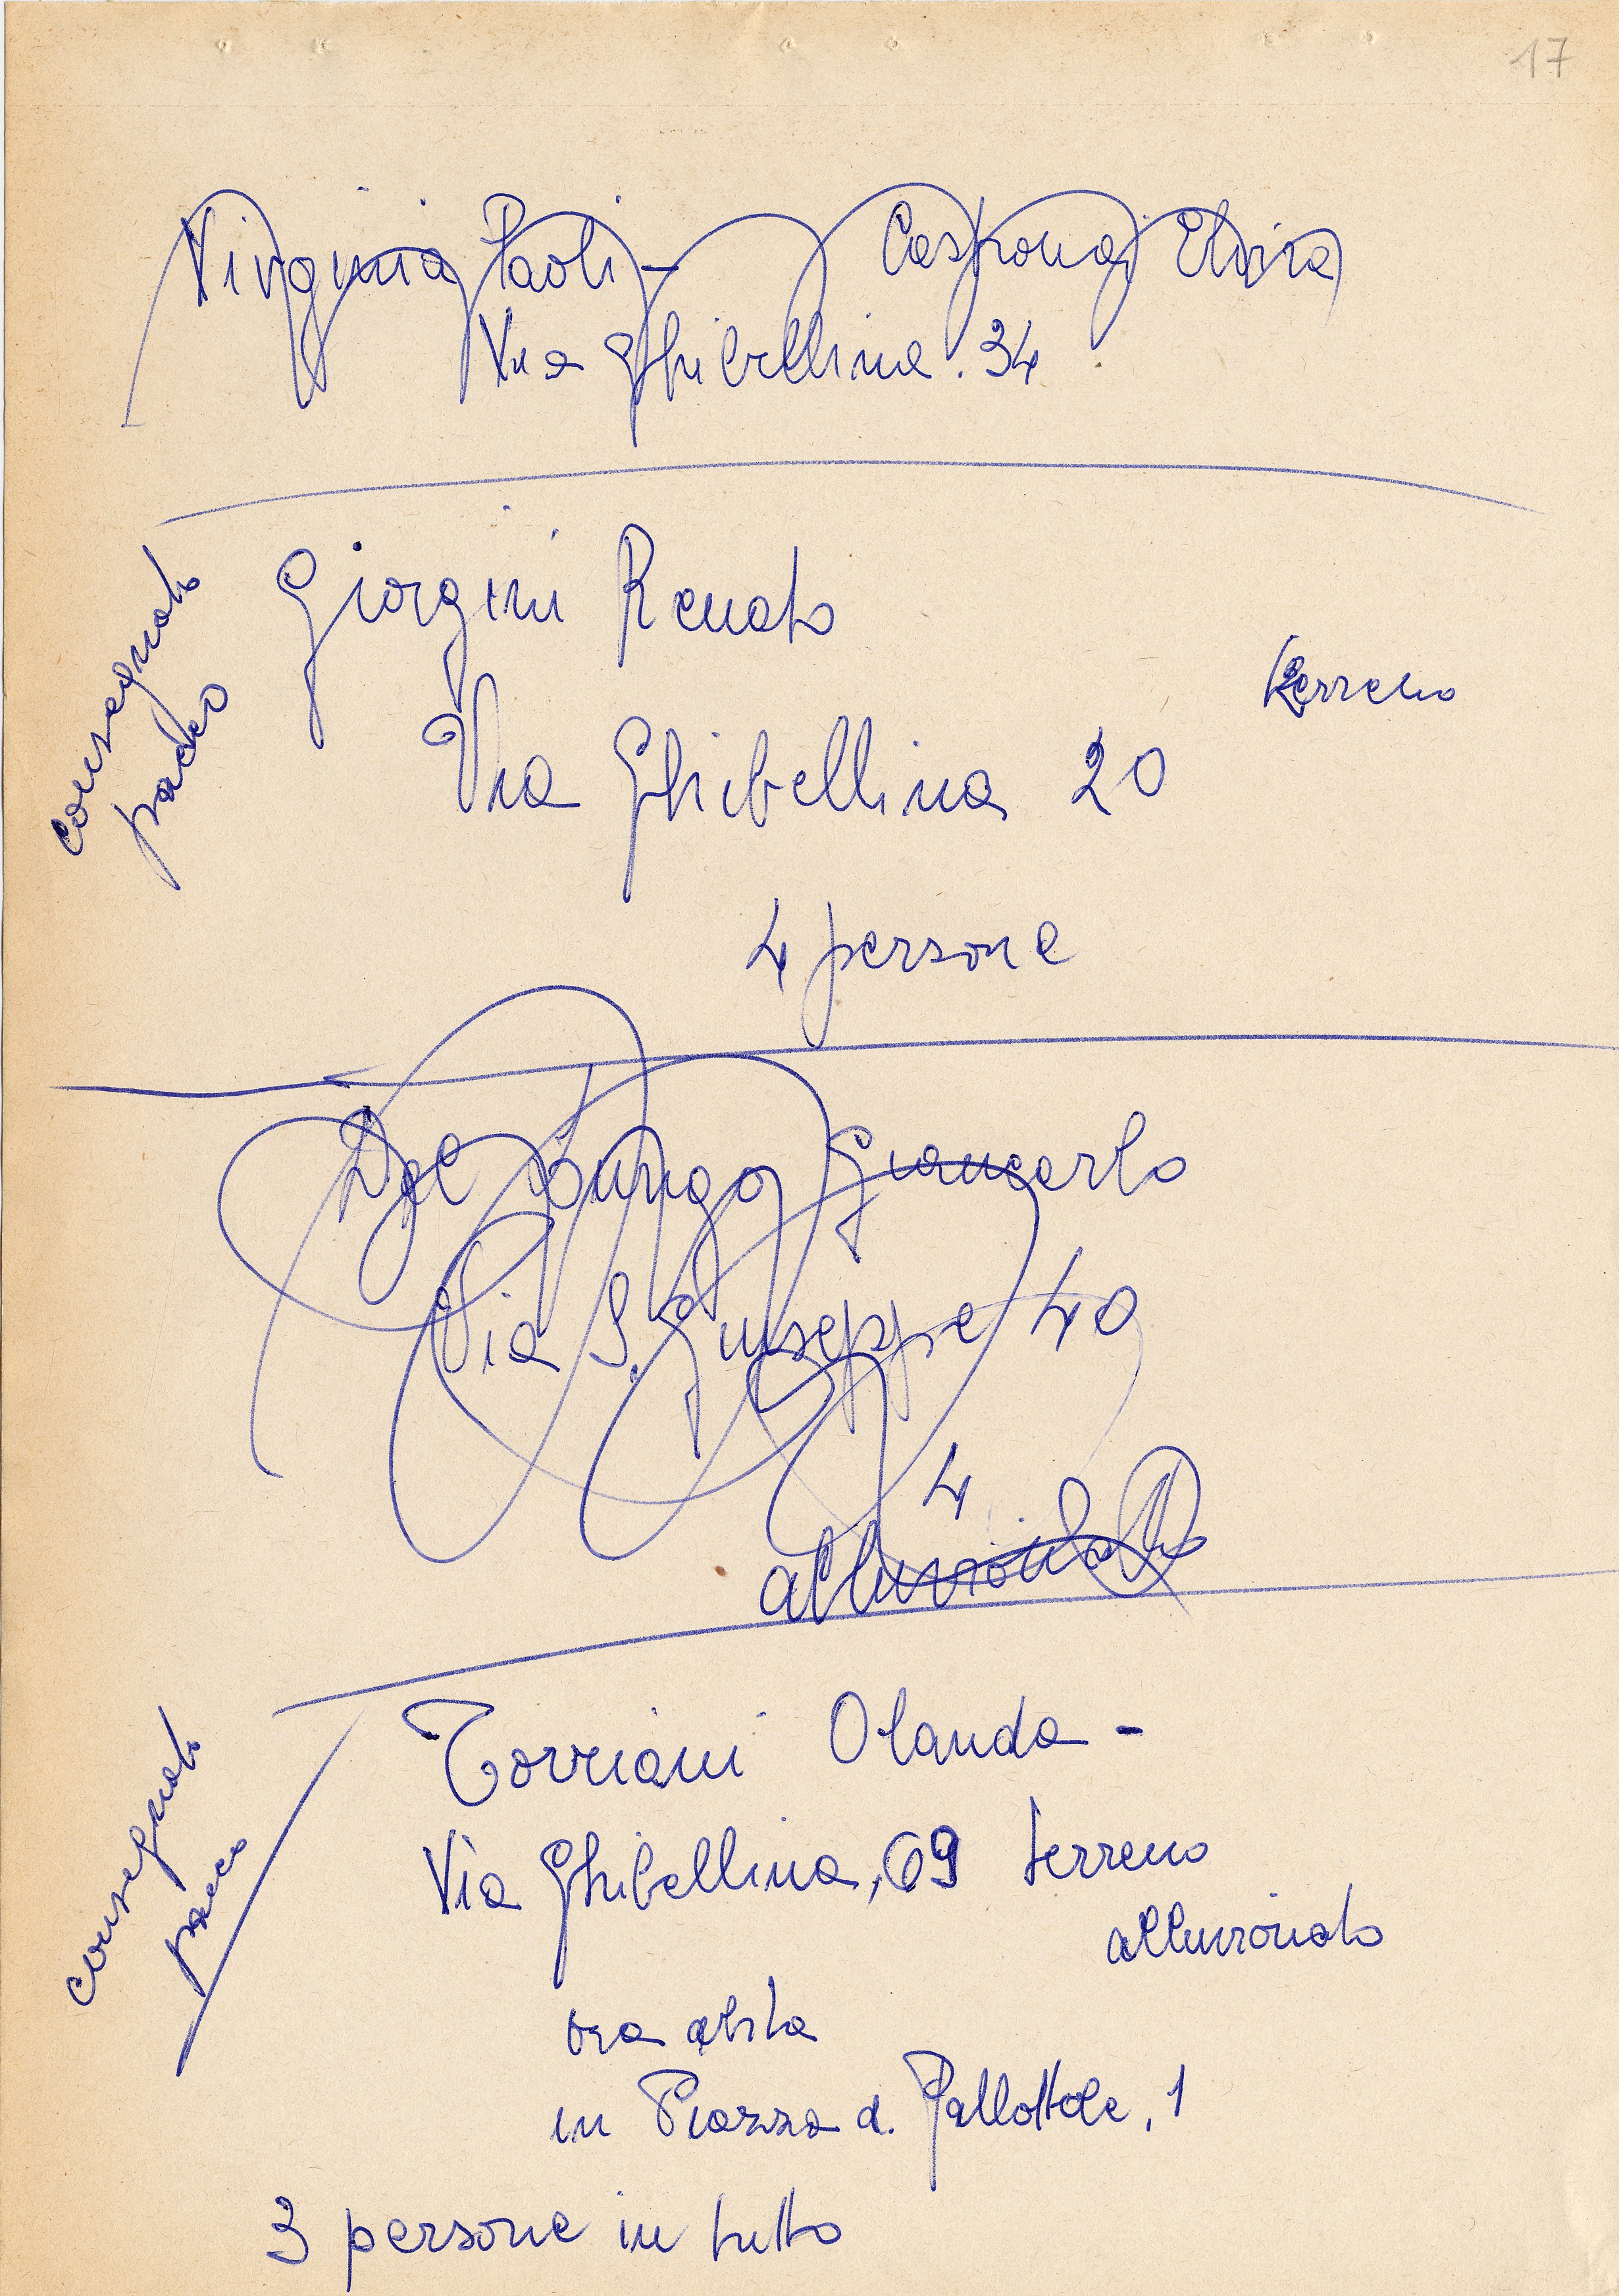 17
Virginia Paoli - Casprona Elvira
Via Ghibellina. 34
consegnato
pacco
Giorgini Renato
terreno
Via Ghibellina 20
4 persone
Del Lungo Giancarlo
Via S. Giuseppe 40
4
alluvionato
consegnato
pacco
Torriani Olanda -
Via Ghibellina, 69 terreno
alluvionato
ora abita
in Piazza d. Pallottole, 1
3 persone in tutto